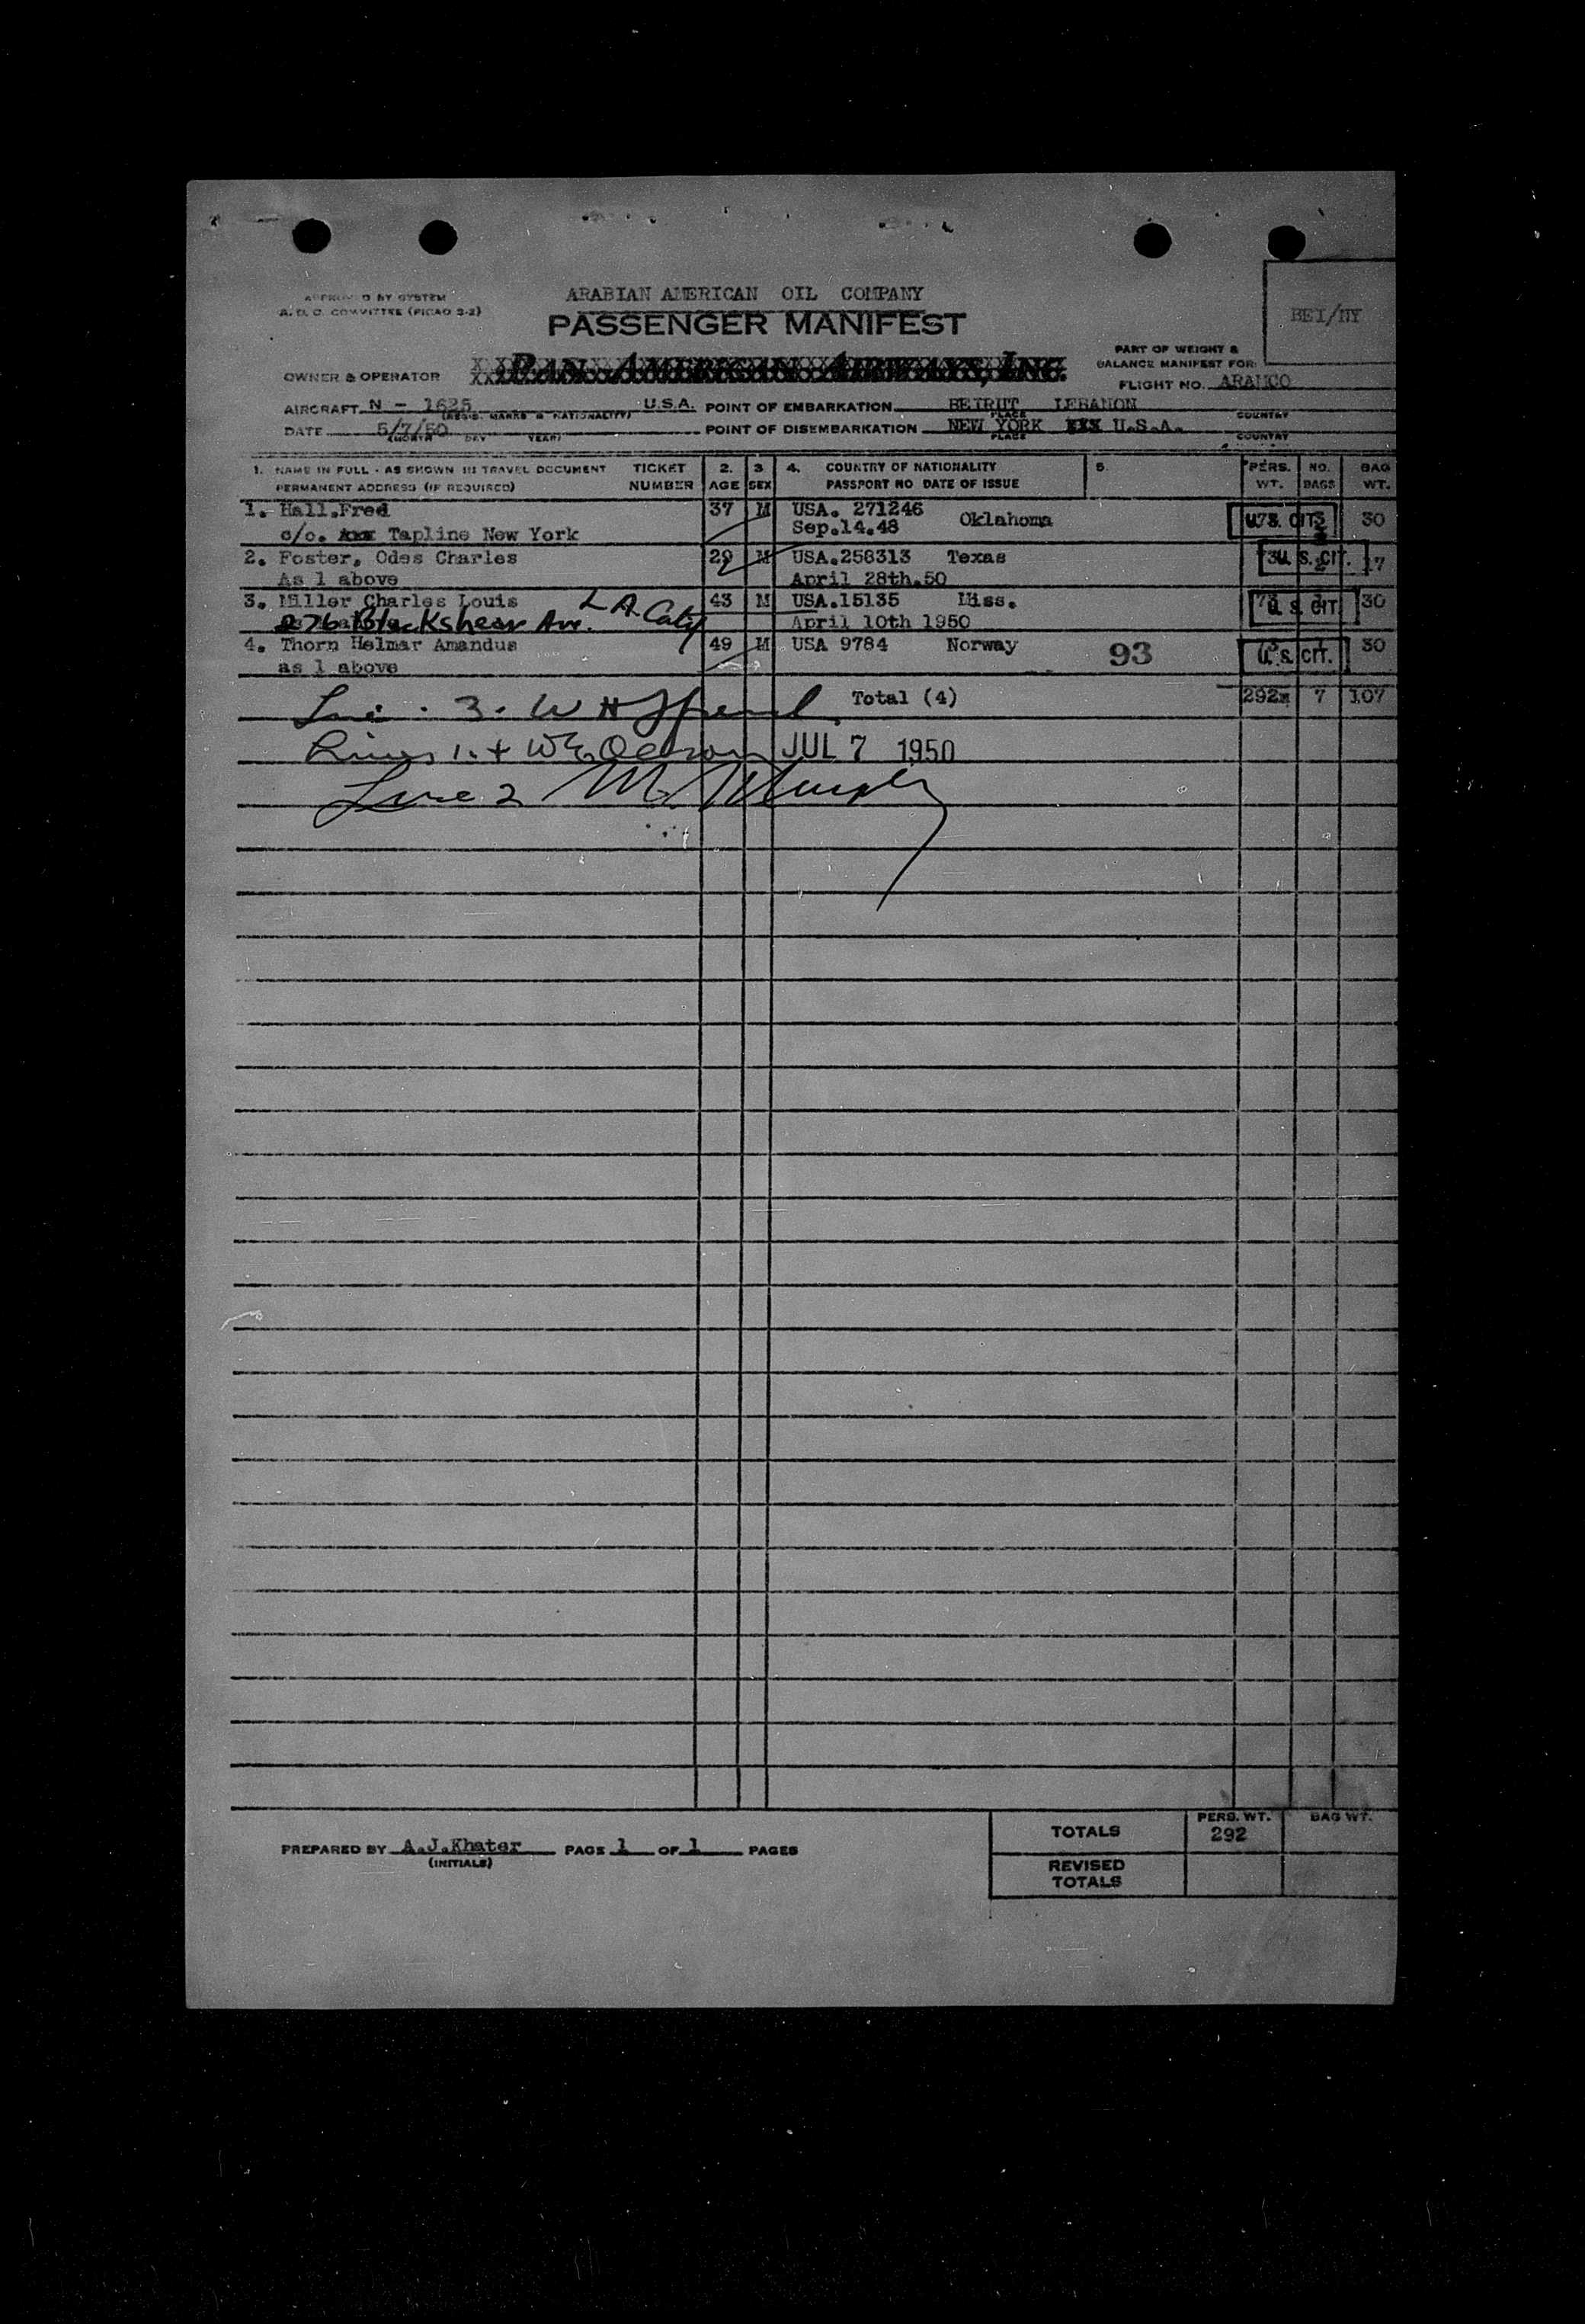 ARABIAN AMERICAN OIL COMPANY
APPROVED BY SYSTEM
A. D. C. COMMITTEE (PICAO 2-2)
PASSENGER MANIFEST
BEI/NY
OWNER & OPERATOR PAN AMERICAN AIRWAYS, INC.
PART OF WEIGHT &
BALANCE MANIFEST FOR:
FLIGHT NO. ARAMCO
AIRCRAFT N - 1625 U.S.A. POINT OF EMBARKATION BEIRUT LEBANON
(REGIS. MARKS & NATIONALITY) PLACE COUNTRY
DATE 5/7/50 POINT OF DISEMBARKATION NEW YORK XXX U.S.A.
(MONTH DAY YEAR) PLACE COUNTRY
1. NAME IN FULL - AS SHOWN IN TRAVEL DOCUMENT TICKET 2. 3 4. COUNTRY OF NATIONALITY 5. PERS. NO. BAG
PERMANENT ADDRESS (IF REQUIRED) NUMBER AGE SEX PASSPORT NO DATE OF ISSUE WT. BAGS WT.
1. Hall.Fred 37 M USA. 271246 Oklahoma U. S. CIT. 30
c/o. Tapline New York Sep.14.48
2. Foster, Odes Charles 29 M USA.256313 Texas U. S. CIT. 17
As 1 above April 28th.50
3. Miller Charles Louis 43 M USA.15135 Miss. U. S. CIT. 30
276 Blackshear Ave. L A. Calif April 10th 1950
4. Thorn Helmar Amandus 49 M USA 9784 Norway 93 U. S. CIT. 30
as 1 above
Total (4) 292 7 107
Line 3.
Lines 1. + JUL 7 1950
Line 2
PREPARED BY A.J.Khater PAGE 1 OF 1 PAGES
(INITIALS)
TOTALS PERS. WT. 292 BAG WT.
REVISED
TOTALS